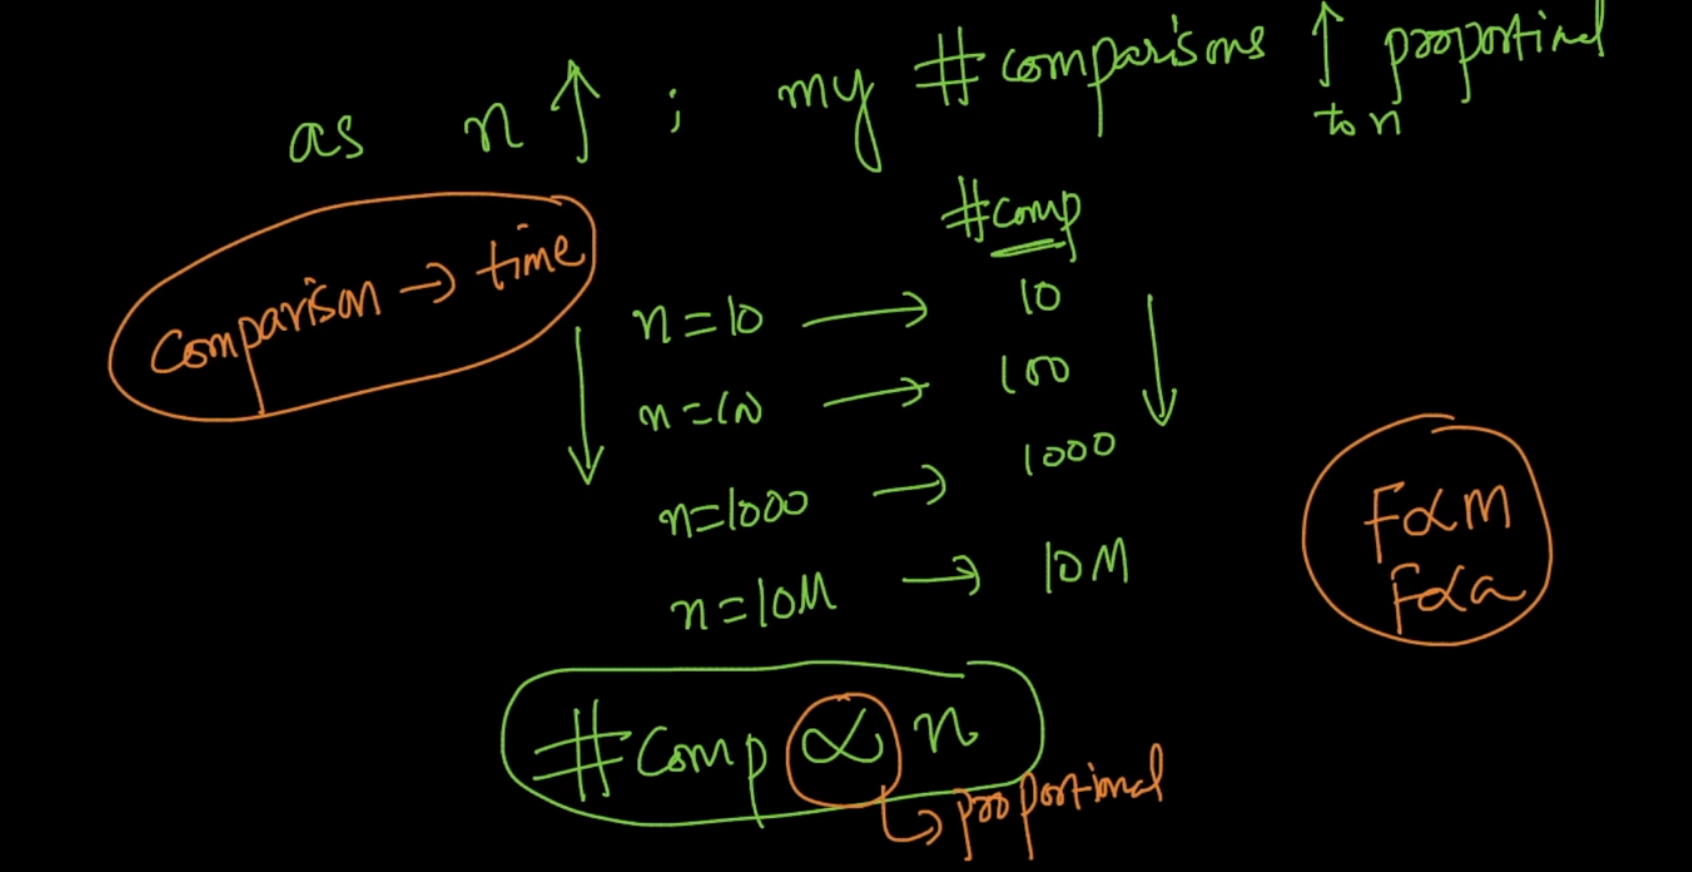 as n ↑ ; my #comparisons ↑ proportional
to n
#comp
Comparison → time
n=10 → 10
n=100 → 100
n=1000 → 1000
n=10M → 10M
F∝m
F∝a
#Comp ∝ n
↳ proportional